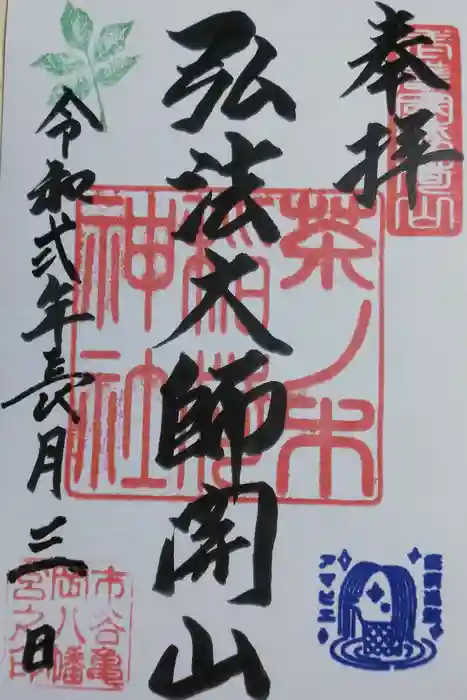 奉拝
弘法大師開山
令和弐年壱月三日
茶ノ木
稲荷
神社
市谷亀
岡八幡
宮之印
アマビエ